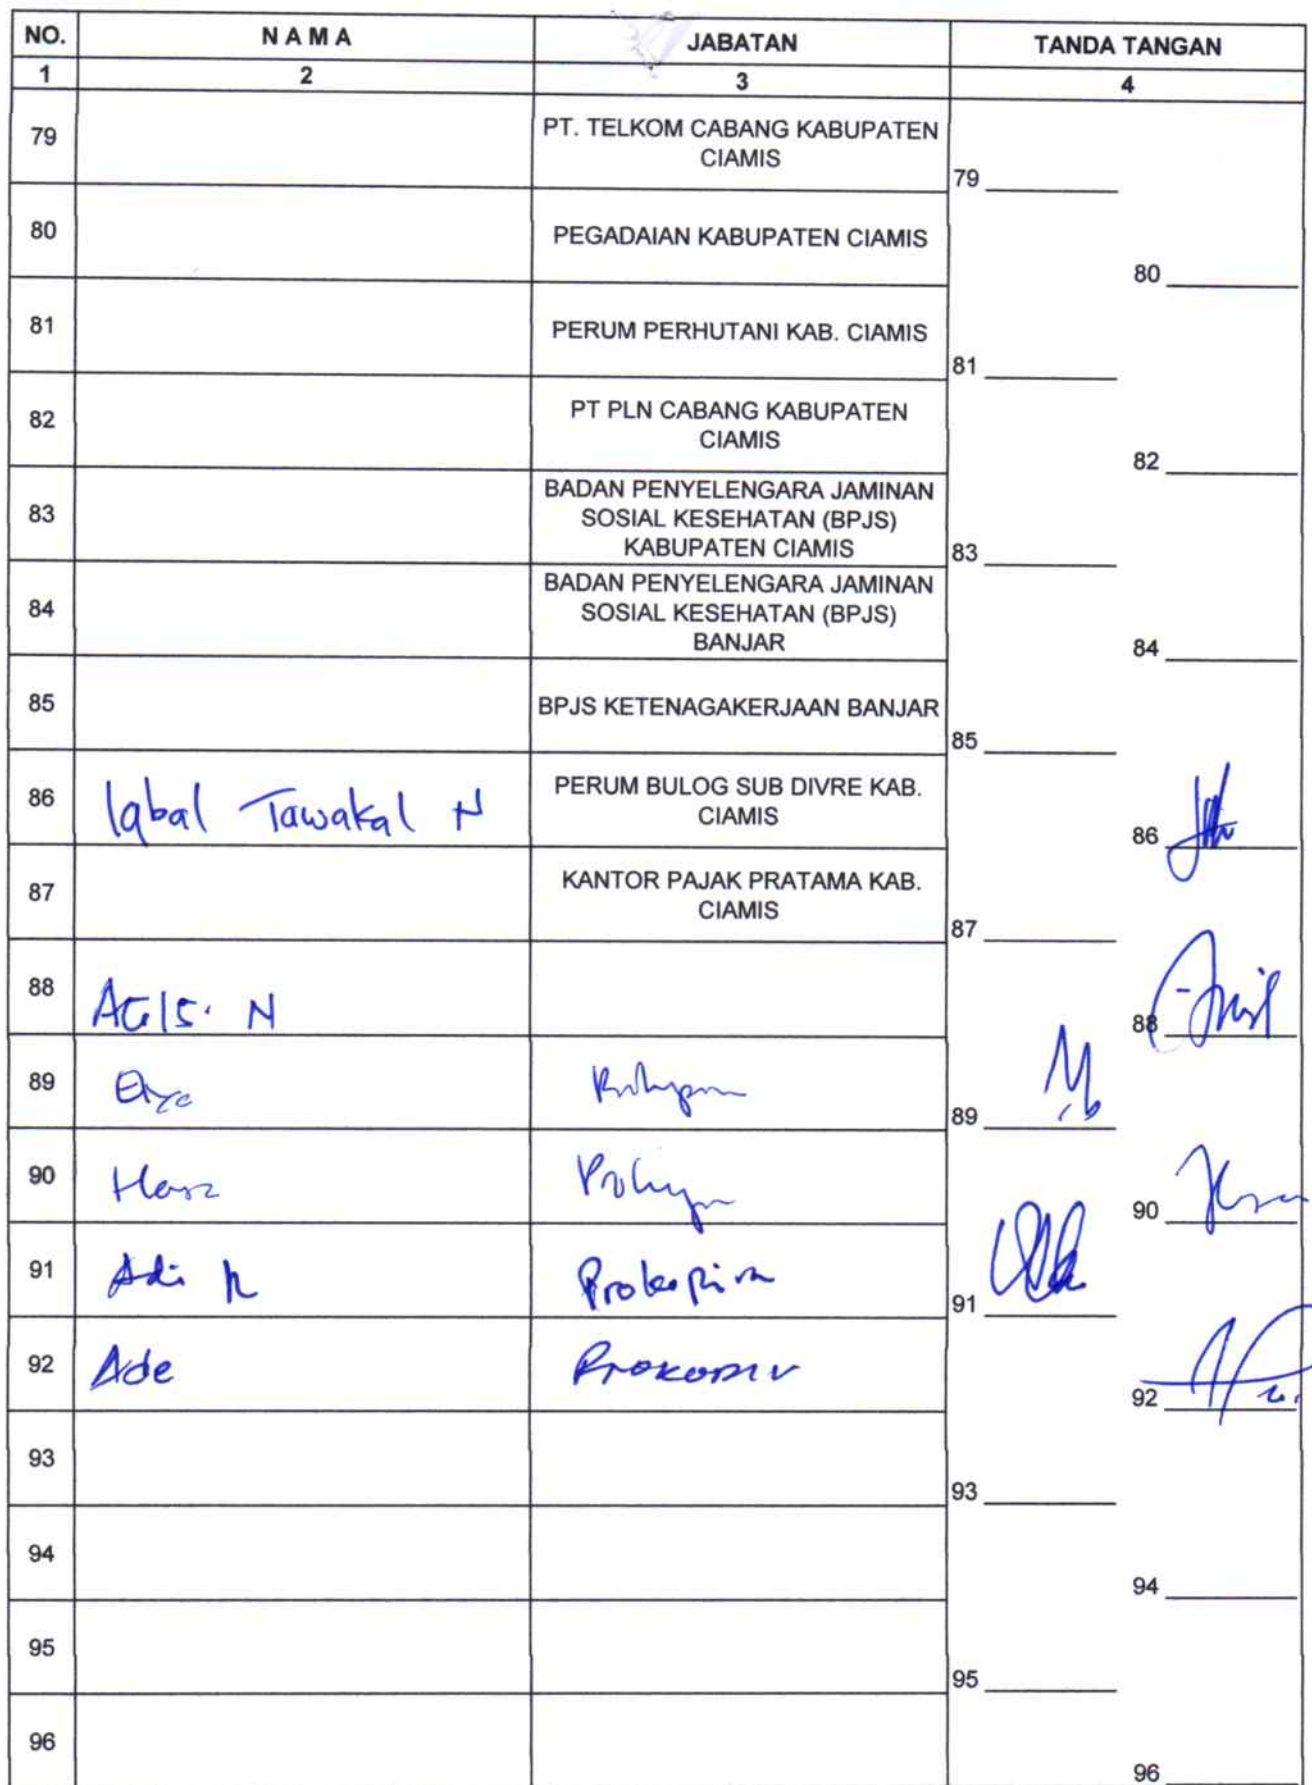 NO. NAMA JABATAN TANDA TANGAN
1 2 3 4
79 PT. TELKOM CABANG KABUPATEN
CIAMIS
79
80 PEGADAIAN KABUPATEN CIAMIS
80
81 PERUM PERHUTANI KAB. CIAMIS
81
82 PT PLN CABANG KABUPATEN
CIAMIS
82
83 BADAN PENYELENGARA JAMINAN
SOSIAL KESEHATAN (BPJS)
KABUPATEN CIAMIS
83
84 BADAN PENYELENGARA JAMINAN
SOSIAL KESEHATAN (BPJS)
BANJAR
84
85 BPJS KETENAGAKERJAAN BANJAR
85
86 Iqbal Tawakal N PERUM BULOG SUB DIVRE KAB.
CIAMIS
86
87 KANTOR PAJAK PRATAMA KAB.
CIAMIS
87
88 AGIS. N
88
89
89
90
90
91 Adi
91
92 Ade
92
93
93
94
94
95
95
96
96